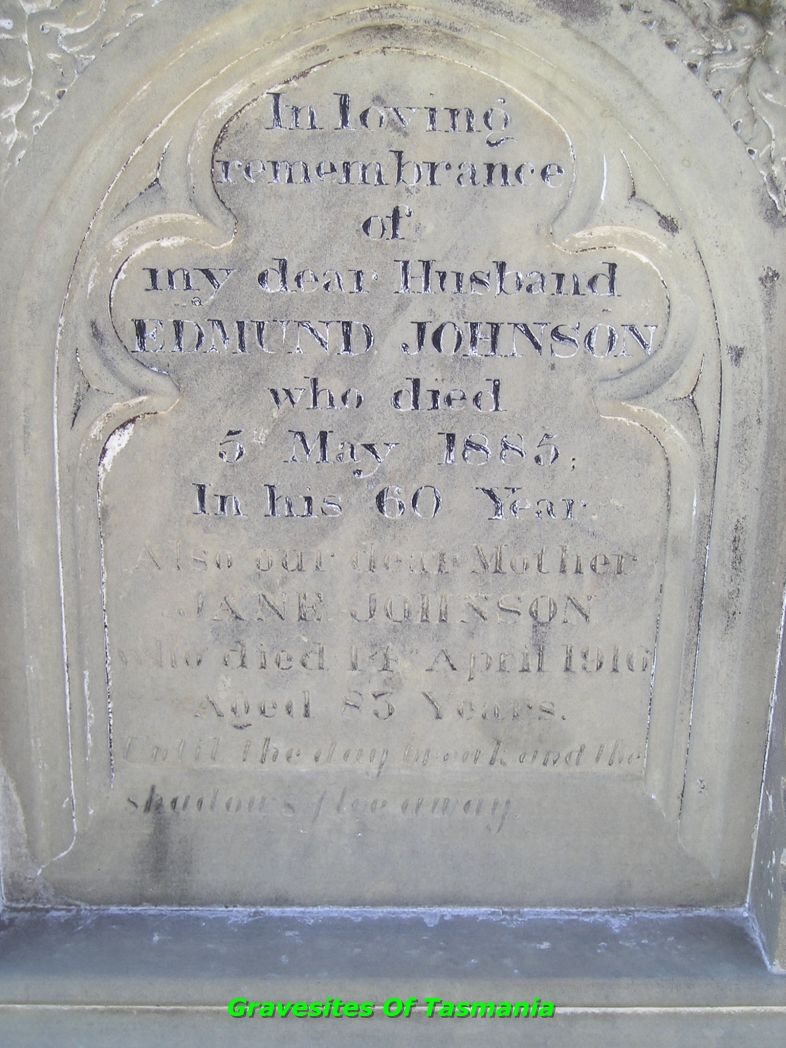 In loving
remembrance
of
my dear Husband
EDMUND JOHNSON
who died
5 May 1885,
In his 60 Year.
Also our dear Mother
JANE JOHNSON
who died 14th April 1916
Aged 83 Years.
Until the day break and the
shadows flee away.
Gravesites Of Tasmania